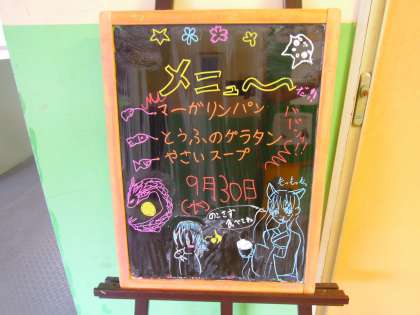 メニュ〜
だ!!
マーガリンパン
とうふのグラタン
やさいスープ
9月30日
(水)
のこさず
食べてね